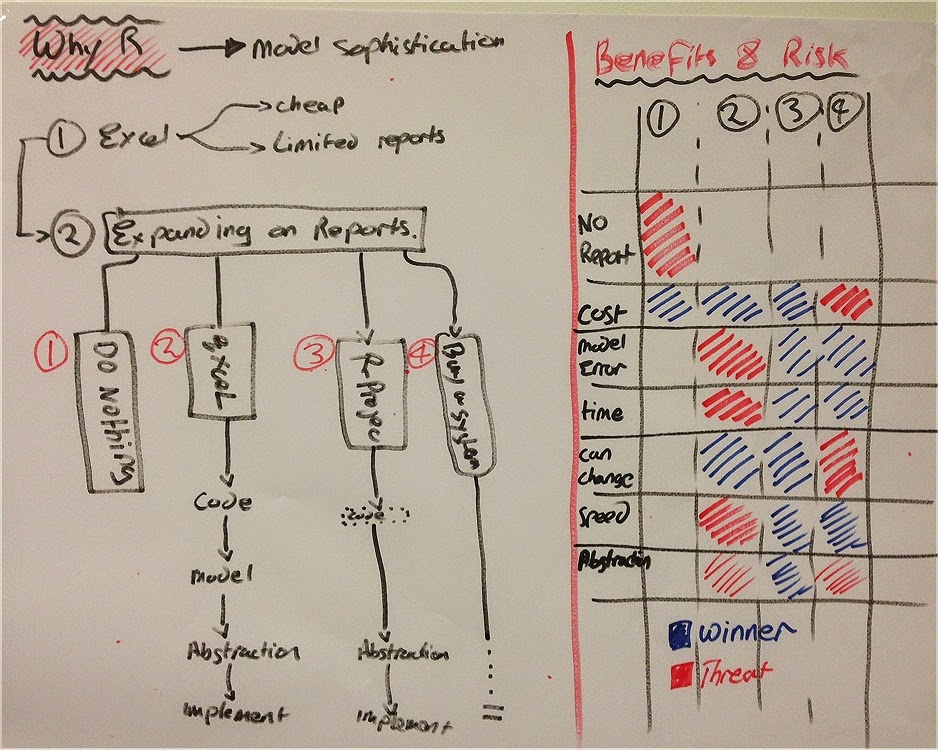 Why R → Model Sophistication
① Excel
→ cheap
→ Limited reports
② Expanding on Reports.
① DO Nothing
② Excel
Code
Model
Abstraction
Implement
③
Code
Abstraction
Implement
④ Buy a System
Benefits & Risk
① ② ③ ④
NO
Report
Cost
Model
Error
time
can
change
Speed
Abstraction
winner
Threat